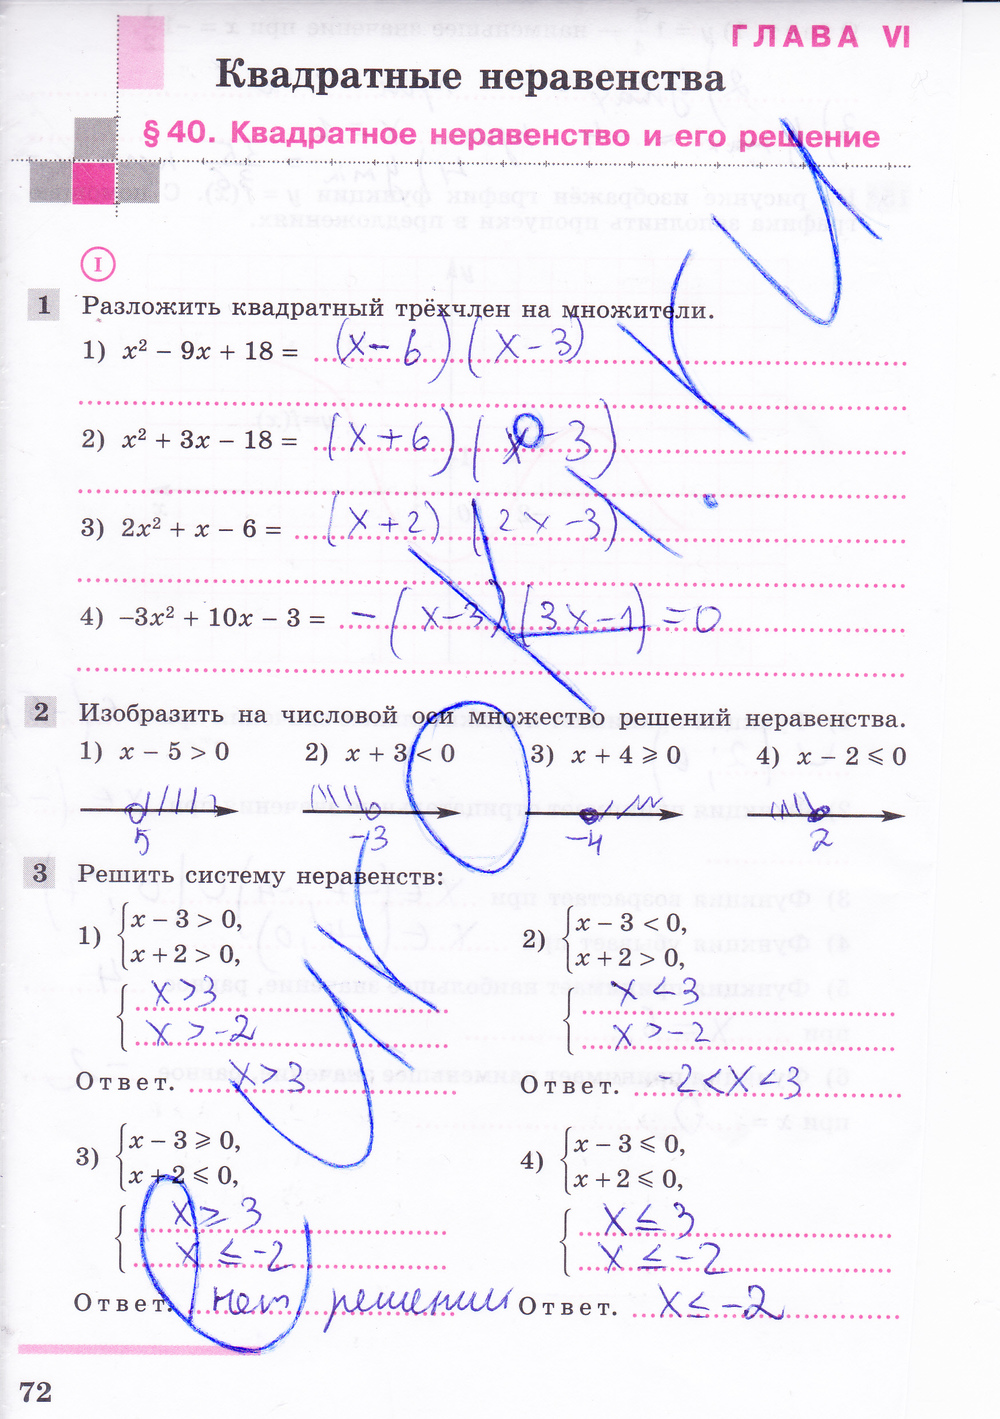 ГЛАВА VI
Квадратные неравенства
§ 40. Квадратное неравенство и его решение
I
1 Разложить квадратный трёхчлен на множители.
1) x² − 9x + 18 = (x − 6)(x − 3)
2) x² + 3x − 18 = (x + 6)(x − 3)
3) 2x² + x − 6 = (x + 2)(2x − 3)
4) −3x² + 10x − 3 = −(x − 3)(3x − 1) = 0
2 Изобразить на числовой оси множество решений неравенства.
1) x − 5 > 0 2) x + 3 < 0 3) x + 4 ⩾ 0 4) x − 2 ⩽ 0
5 −3 −4 2
3 Решить систему неравенств:
1) { x − 3 > 0, 2) { x − 3 < 0,
x + 2 > 0, x + 2 > 0,
{ x > 3 { x < 3
x > −2 x > −2
Ответ. x > 3 Ответ. −2 < x < 3
3) { x − 3 ⩾ 0, 4) { x − 3 ⩽ 0,
x + 2 ⩽ 0, x + 2 ⩽ 0,
{ x ≥ 3 { x ≤ 3
x ≤ −2 x ≤ −2
Ответ. нет решений Ответ. x ≤ −2
72